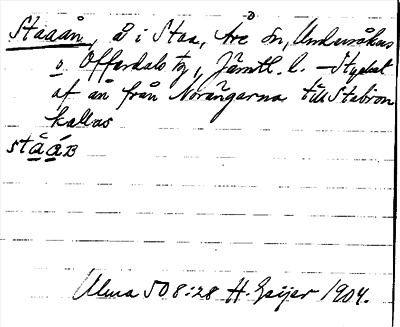 Staaån, B i Staa, Åre sn, Undersåkers
o. Offerdals tg, Jämtl. l. – Stycket
af ån från Norängarna till Stabron
kallas
ståaB
Ulma 508:28 H. Geijer 1904.